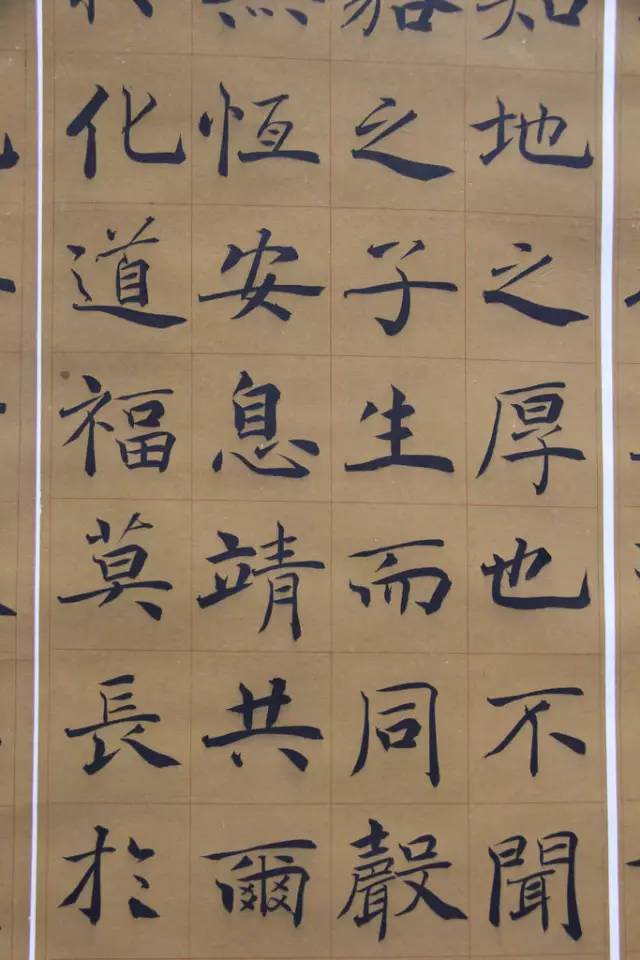 知地之厚也不聞
貉之子生而同聲
無恆安息靖共爾
於化道福莫長於